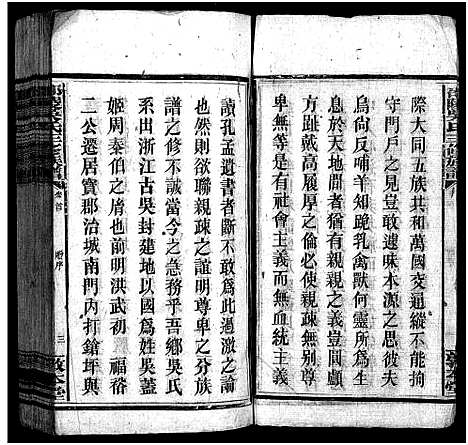 際大同五族共和萬國交通縱不能拘
守門戶之見豈敢遽昧本源之思彼夫
烏尚反哺羊知跪乳禽獸原所爲生
息於天地間者猶有親親之義豈圓顱
方趾戴高履厚之倫必使親疎無別尊
卑無等是有社會主義而無血統主義
讀孔孟遺書者斷不敢爲此過激之論
也然則欲聯親疎之誼明尊卑之分族
譜之修不誠當今之急務乎吾鄉吳氏
系出浙江古吳封建地以國爲姓吳蓋
姬周泰伯之裔也前明洪武初 福裕
二公遷居寶郡治城南門內打鎗坪與
吳氏三修族譜
卷首
贈序
三
敦本堂